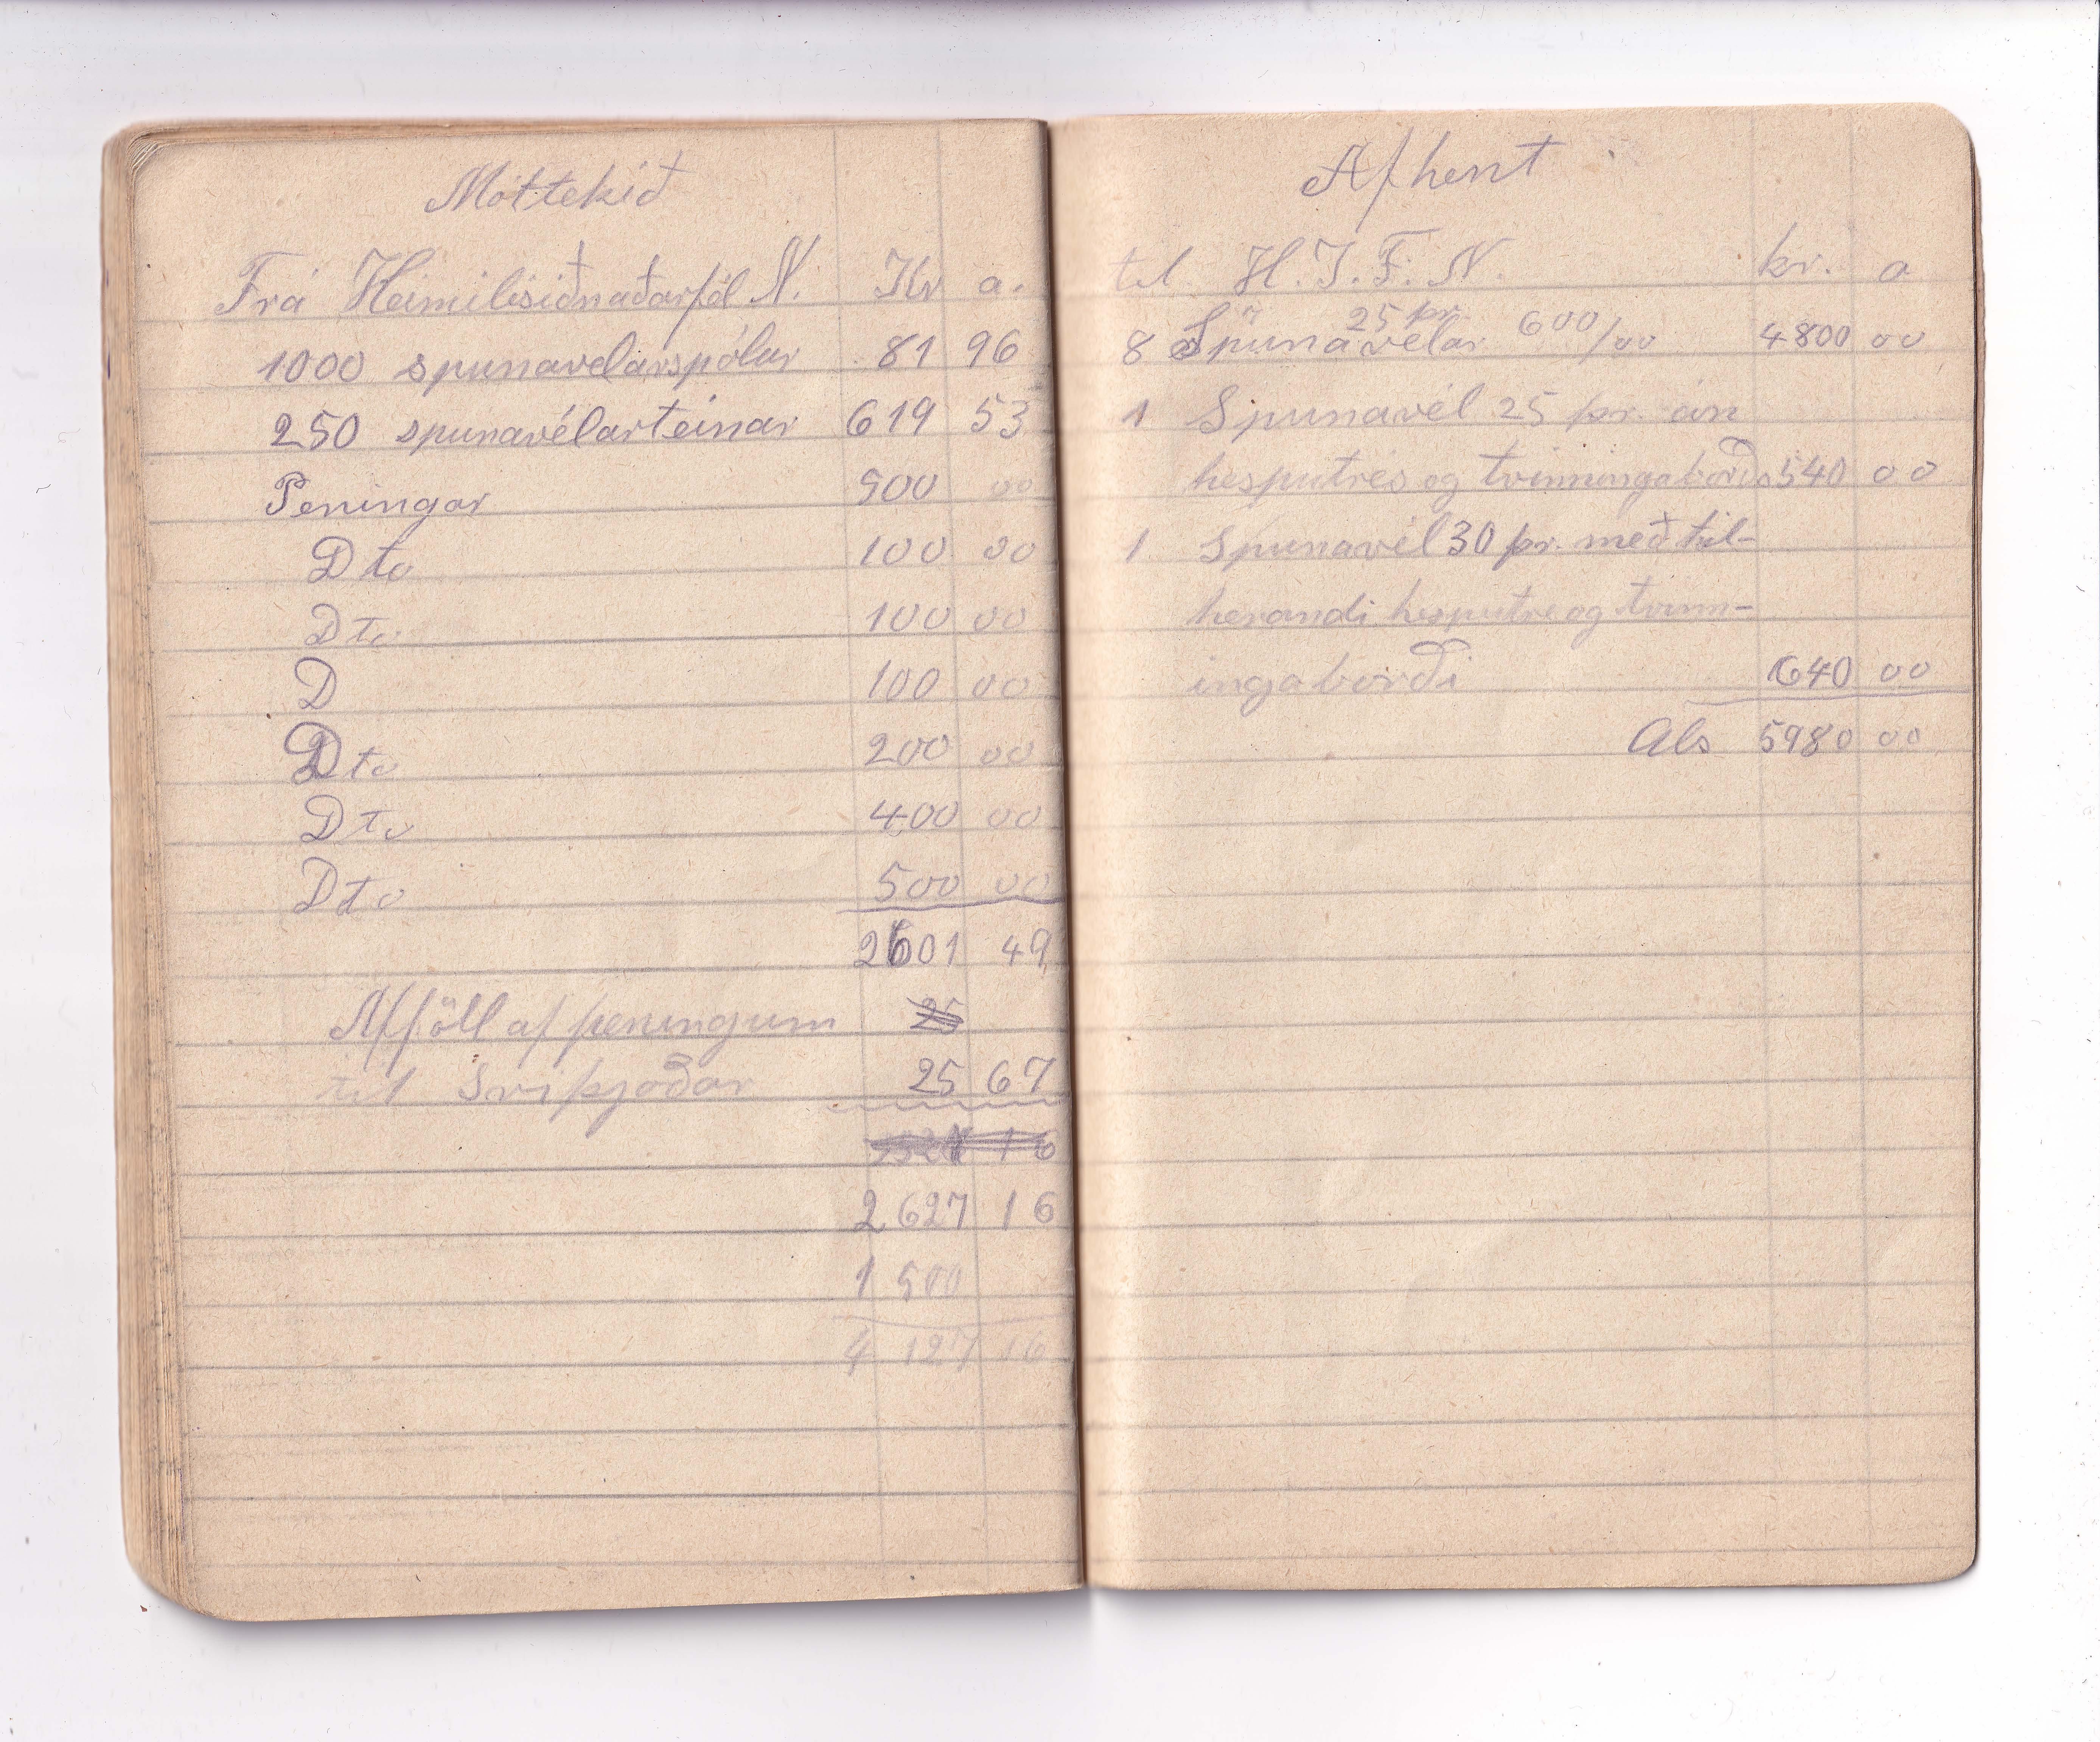 Móttekið
Frá Heimilisiðnaðarfél N. Kr a.
1000 spunavelarspólur 81 96
250 spunavélarteinar 619 53
Peningar 500 00
Dto 100 00
Dto 100 00
D 100 00
Dto 200 00
Dto 400 00
Dto 500 00
2601 49
Afföll af peningum 25
til Sviþjoðar 25 67
16
2627 16
1 500
4 127 16
Afhent
til H.I.F.N. kr. a
25 þr.
8 Spunavélar 600/00 4800 00
1 Spunavél 25 þr. án
hesputrés og tvinningaborðs 540 00
1 Spunavél 30 þr. með til-
herandi hesputre og tvinn-
ingaborði 640 00
Als 5980 00